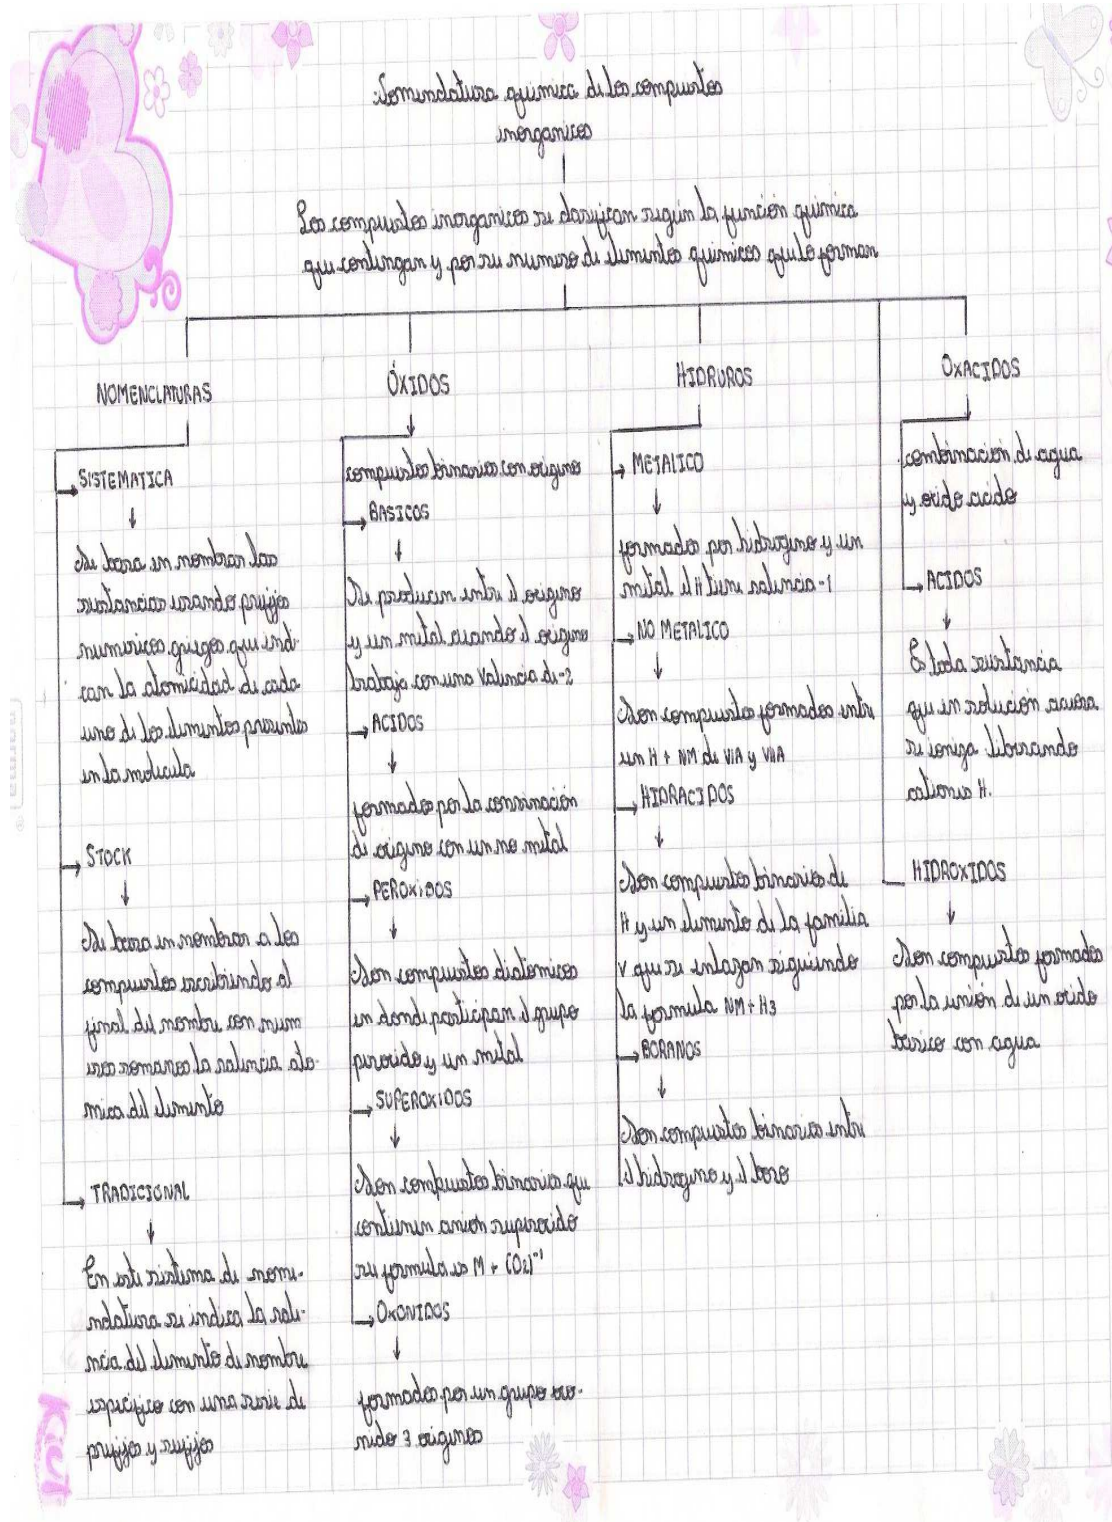 Nomenclatura quimica de los compuestos
inorganicos
Los compuestos inorganicos se clasifican según la función quimica
que contengan y por su numero de elementos quimicos que lo forman
NOMENCLATURAS
SISTEMATICA
Se basa en nombrar las
sustancias usando prefijos
numericos griegos que indi
can la atomicidad de cada
uno de los elementos presentes
en la molecula
STOCK
Se basa en nombrar a los
compuestos escribiendo al
final del nombre con num
eros romanos la valencia ato-
mica del elemento
TRADICIONAL
En este sistema de nome-
nclatura se indica la vale-
ncia del elemento de nombre
especifico con una serie de
prefijos y sufijos
ÓXIDOS
compuestos binarios con oxigeno
BASICOS
Se producen entre el oxigeno
y un metal cuando el oxigeno
trabaja con una Valencia de -2
ACIDOS
formados por la conminación
de oxigeno con un no metal
PEROXIDOS
Son compuestos diatomicos
en donde participan el grupo
peroxido y un metal
SUPEROXIDOS
Son compuestos binarios que
contienen anion superoxido
su formula es M + (O2)-1
OXONIDOS
formados por un grupo oxo-
nido 3 oxigenos
HIDRUROS
METALICO
formados por hidrogeno y un
metal el H tiene valencia -1
NO METALICO
Son compuestos formados entre
un H + NM de VIA y VIIA
HIDRACIDOS
Son compuestos binarios de
H y un elemento de la familia
V que se enlazan siguiendo
la formula NM + H3
BORANOS
Son compuestos binarios entre
el hidrogeno y el boro
OXACIDOS
combinación de agua
y oxido acido
ACIDOS
Es toda sustancia
que en solución acuosa
se ioniza liberando
cationes H.
HIDROXIDOS
Son compuestos formados
por la unión de un oxido
basico con agua
Kiut